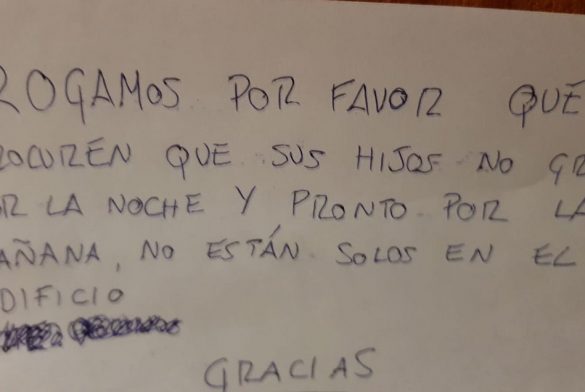 ROGAMOS POR FAVOR QUE
ROCUREN QUE SUS HIJOS NO GR
OR LA NOCHE Y PRONTO POR LA
AÑANA, NO ESTÁN SOLOS EN EL
DIFICIO
GRACIAS